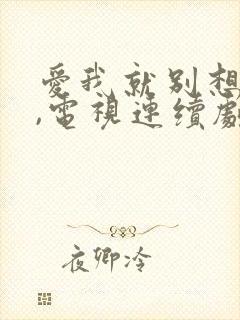 愛我就別想
,電視連續劇
夜卿泠